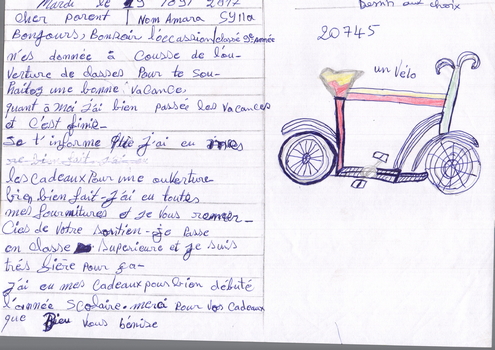 Mardi le 19/09/2017
Dessin aux choix
cher parent | Nom Amara Sylla
Bonjours, Bonsoir l'occassion/classé 3e Année
m'es donnée à Cousse de l'ou-
verture de classes Pour te sou-
haitez une bonne vacance
quant à moi j'ai bien passée les vacances
et C'est finie-
Je t'informe que j'ai eu mes
les Cadeaux Pour une ouverture
bien bien fait-j'ai eu toutes
mes fournitures et je vous remer-
cies de votre soutien-je Passe
en classe Superieure et je suis
trés fière pour ça-
j'ai eu mes Cadeaux pour bien débuté
l'année Scolaire-merci Pour vos Cadeaux
que Dieu vous bénise
20745
un vélo